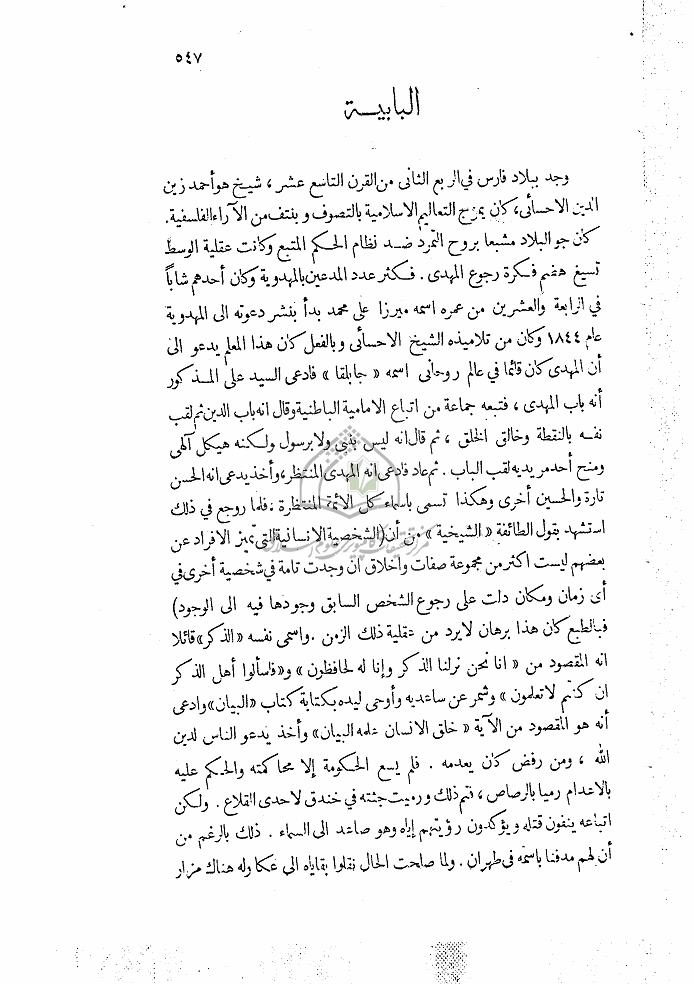 ٥٤٧
البابيـــة
وجد ببلاد فارس في الربع الثانى من القرن التاسع عشر ، شيخ هو أحمد زين
الدين الاحسائى، كان يمزج التعاليم الاسلامية بالتصوف و بنتف من الآراء الفلسفية.
كان جو البلاد مشبعا بروح التمرد ضد نظام الحكم المتبع وكانت عقلية الوسط
تسيغ هضم فكرة رجوع المهدى . فكثر عدد المدعين بالمهدوية وكان أحدهم شاباً
في الرابعة والعشرين من عمره اسمه ميرزا على محمد بدأ بنشر دعوته الى المهدوية
عام ١٨٤٤ وكان من تلاميذه الشيخ الاحسائى وبالفعل كان هذا المعلم يدعو الى
أن المهدى كان قائما في عالم روحانى اسمه « جابلقا » فادعى السيد على المذكور
أنه باب المهدى ، فتبعه جماعة من اتباع الامامية الباطنية وقال انه باب الدين ثم لقب
نفسه بالنقطة وخالق الخلق ، ثم قال انه ليس بنبي ولا برسول ولكنه هيكل آلهى
ومنح أحد مريديه لقب الباب . ثم عاد فادعى انه المهدى المنتظر، وأخذ يدعى انه الحسن
تارة والحسين أخرى وهكذا تسمى باسماء كل الائمة المنتظرة ، فلما روجع في ذلك
استشهد بقول الطائفة « الشيخية » من أن (الشخصية الانسانية التى تميز الافراد عن
بعضهم ليست اكثر من مجموعة صفات واخلاق ان وجدت تامة في شخصية أخرى في
أى زمان ومكان دلت على رجوع الشخص السابق وجودها فيه الى الوجود)
فبالطبع كان هذا برهان لا يرد من عقلية ذلك الزمن . واسمى نفسه «الذكر» قائلا
انه المقصود من « انا نحن نزلنا الذكر وإنا له لحافظون » و«فاسألوا أهل الذكر
ان كنتم لا تعلمون » وشمر عن ساعديه وأوحى ليده بكتابة كتاب «البيان» وادعى
أنه هو المقصود من الآية « خلق الانسان علمه البيان» وأخذ يدعو الناس لدين
الله ، ومن رفض كان يعدمه . فلم يسع الحكومة إلا محاكمته والحكم عليه
بالاعدام رميا بالرصاص ، فتم ذلك و رميت جثته في خندق لاحدى القلاع . ولكن
اتباعه ينفون قتله و يؤكدون رؤيتهم إياه وهو صاعد الى السماء . ذلك بالرغم من
أن لهم مدفنا باسمه فى طهران . ولما صلحت الحال نقلوا بقاياه الى عكا وله هناك مزار